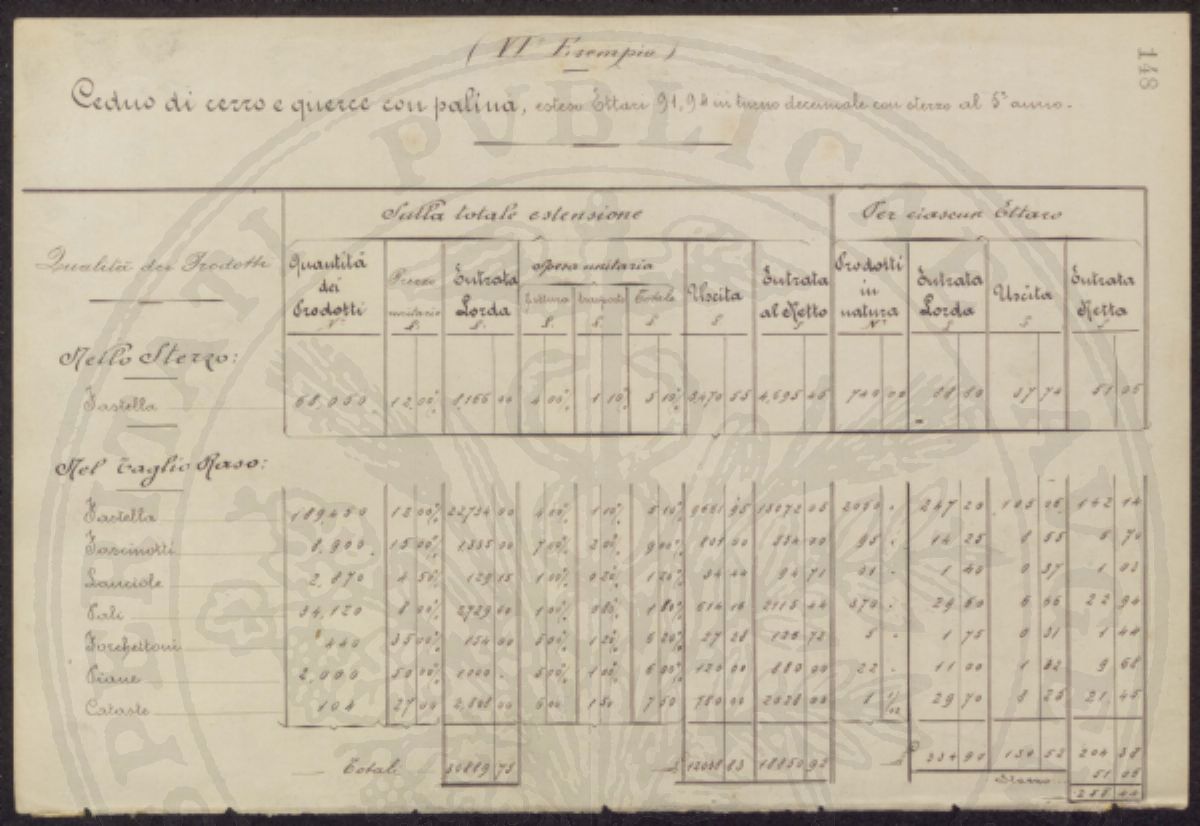 ( VI° Esempio )
148
Ceduo di cerro e querce con palina, esteso Ettari 91,94 in turno decennale con sterzo al 5° anno.
Sulla totale estensione Per ciascun Ettaro
Qualità dei Prodotti Quantità dei Prodotti N° Prezzo unitario £. Entrata Lorda £. Spesa unitaria fattura £. trasporto £. Totale £. Uscita £. Entrata al Netto £. Prodotti in natura N° Entrata Lorda £ Uscita £ Entrata Netta £
Nello Sterzo:
Fastella 68,050 12,00 8,166 00 4 00 1 10 5 10 3,470 55 4,695 45 740 00 88 80 37 74 51 06
Nel Taglio Raso:
Fastella 189,450 12 00 22734 00 4 00 1 10 5 10 9661 95 13072 05 2060 247 20 105 06 142 14
Fascinotti 8,900 15 00 1335 00 7 00 2 00 9 00 801 00 534 00 95 14 25 8 55 5 70
Lanciole 2,870 4 50 129 15 1 00 0 20 1 20 34 44 94 71 31 1 40 0 37 1 03
Pali 34,120 8 00 2729 60 1 00 0 80 1 80 614 16 2115 44 370 29 60 6 66 22 94
Forchettoni 440 35 00 154 00 5 00 1 20 6 20 27 28 126 72 5 1 75 0 31 1 44
Piane 2,000 50 00 1000 5 00 1 00 6 00 120 00 880 00 22 11 00 1 32 9 68
Cataste 104 27 00 2,808 00 6 00 1 50 7 50 780 00 2028 00 29 70 8 25 21 45
Totali 30889 75 £ 12038 83 18850 92 £ 334 90 130 52 204 38
Sterzo 51 06
255 44
PVBLICAE